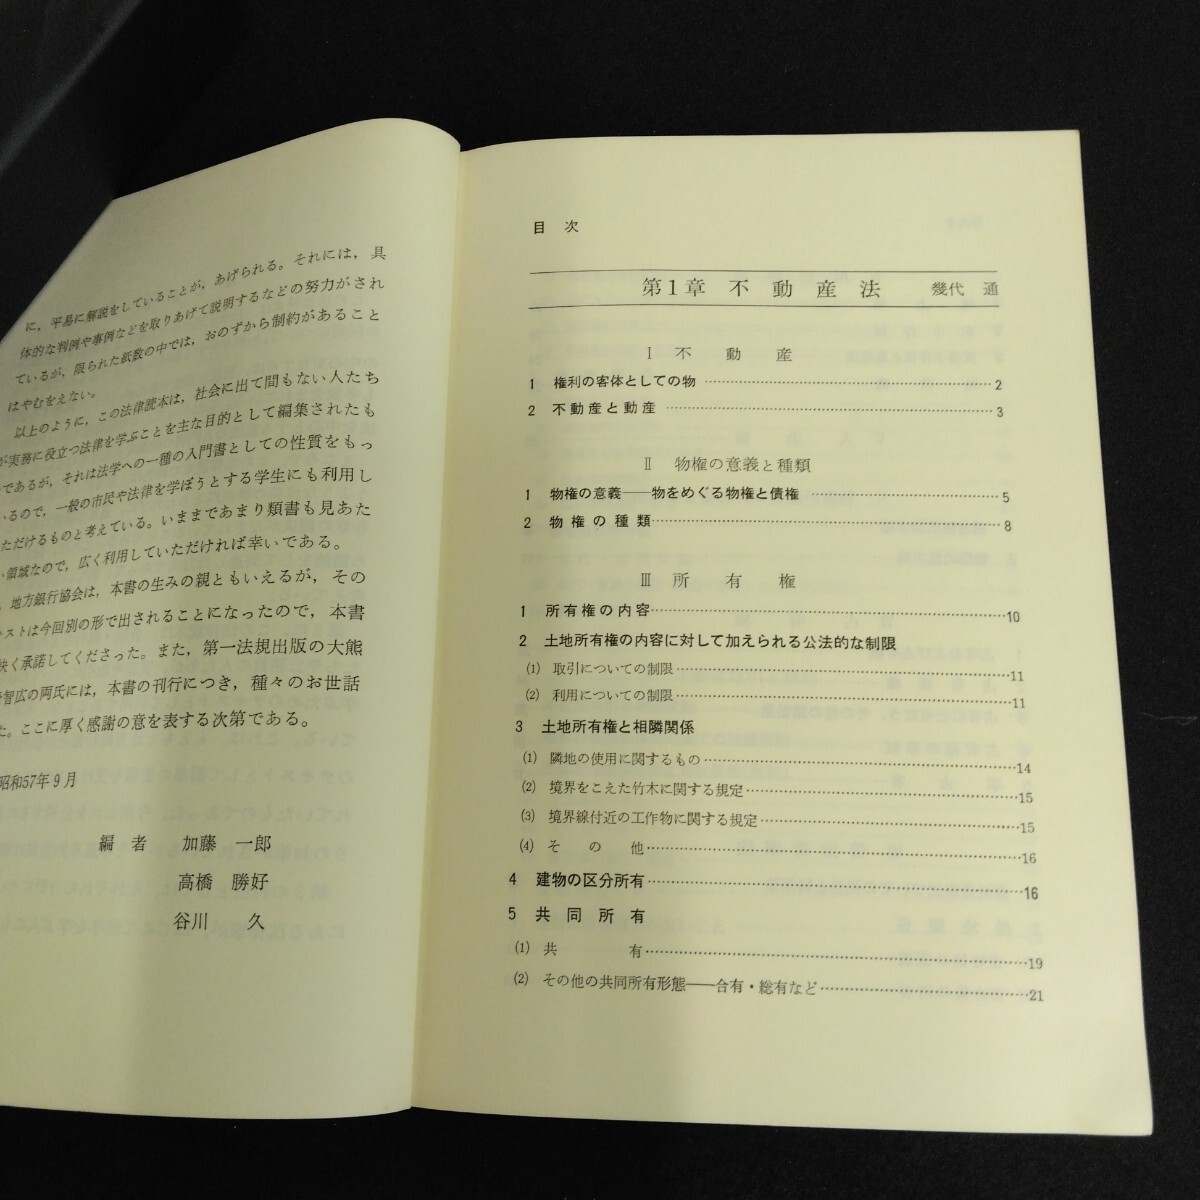 に，平易に解説をしていることが，あげられる。それには，具
体的な判例や事例などを取りあげて説明するなどの努力がされ
ているが，限られた紙数の中では，おのずから制約があること
はやむをえない。
以上のように，この法律読本は，社会に出て間もない人たち
が実務に役立つ法律を学ぶことを主な目的として編集されたも
であるが，それは法学への一種の入門書としての性質をもっ
いるので，一般の市民や法律を学ぼうとする学生にも利用し
ただけるものと考えている。いままであまり類書も見あた
い領域なので，広く利用していただければ幸いである。
，地方銀行協会は，本書の生みの親ともいえるが，その
キストは今回別の形で出されることになったので，本書
快く承諾してくださった。また，第一法規出版の大熊
智広の両氏には，本書の刊行につき，種々のお世話
た。ここに厚く感謝の意を表する次第である。
昭和57年9月
編者 加藤 一郎
高橋 勝好
谷川 久
目次
第1章 不動産法 幾代 通
Ⅰ 不動産
1 権利の客体としての物……2
2 不動産と動産……3
Ⅱ 物権の意義と種類
1 物権の意義――物をめぐる物権と債権……5
2 物権の種類……8
Ⅲ 所有権
1 所有権の内容……10
2 土地所有権の内容に対して加えられる公法的な制限
(1) 取引についての制限……11
(2) 利用についての制限……11
3 土地所有権と相隣関係
(1) 隣地の使用に関するもの……14
(2) 境界をこえた竹木に関する規定……15
(3) 境界線付近の工作物に関する規定……15
(4) その他……16
4 建物の区分所有……16
5 共同所有
(1) 共有……19
(2) その他の共同所有形態――合有・総有など……21